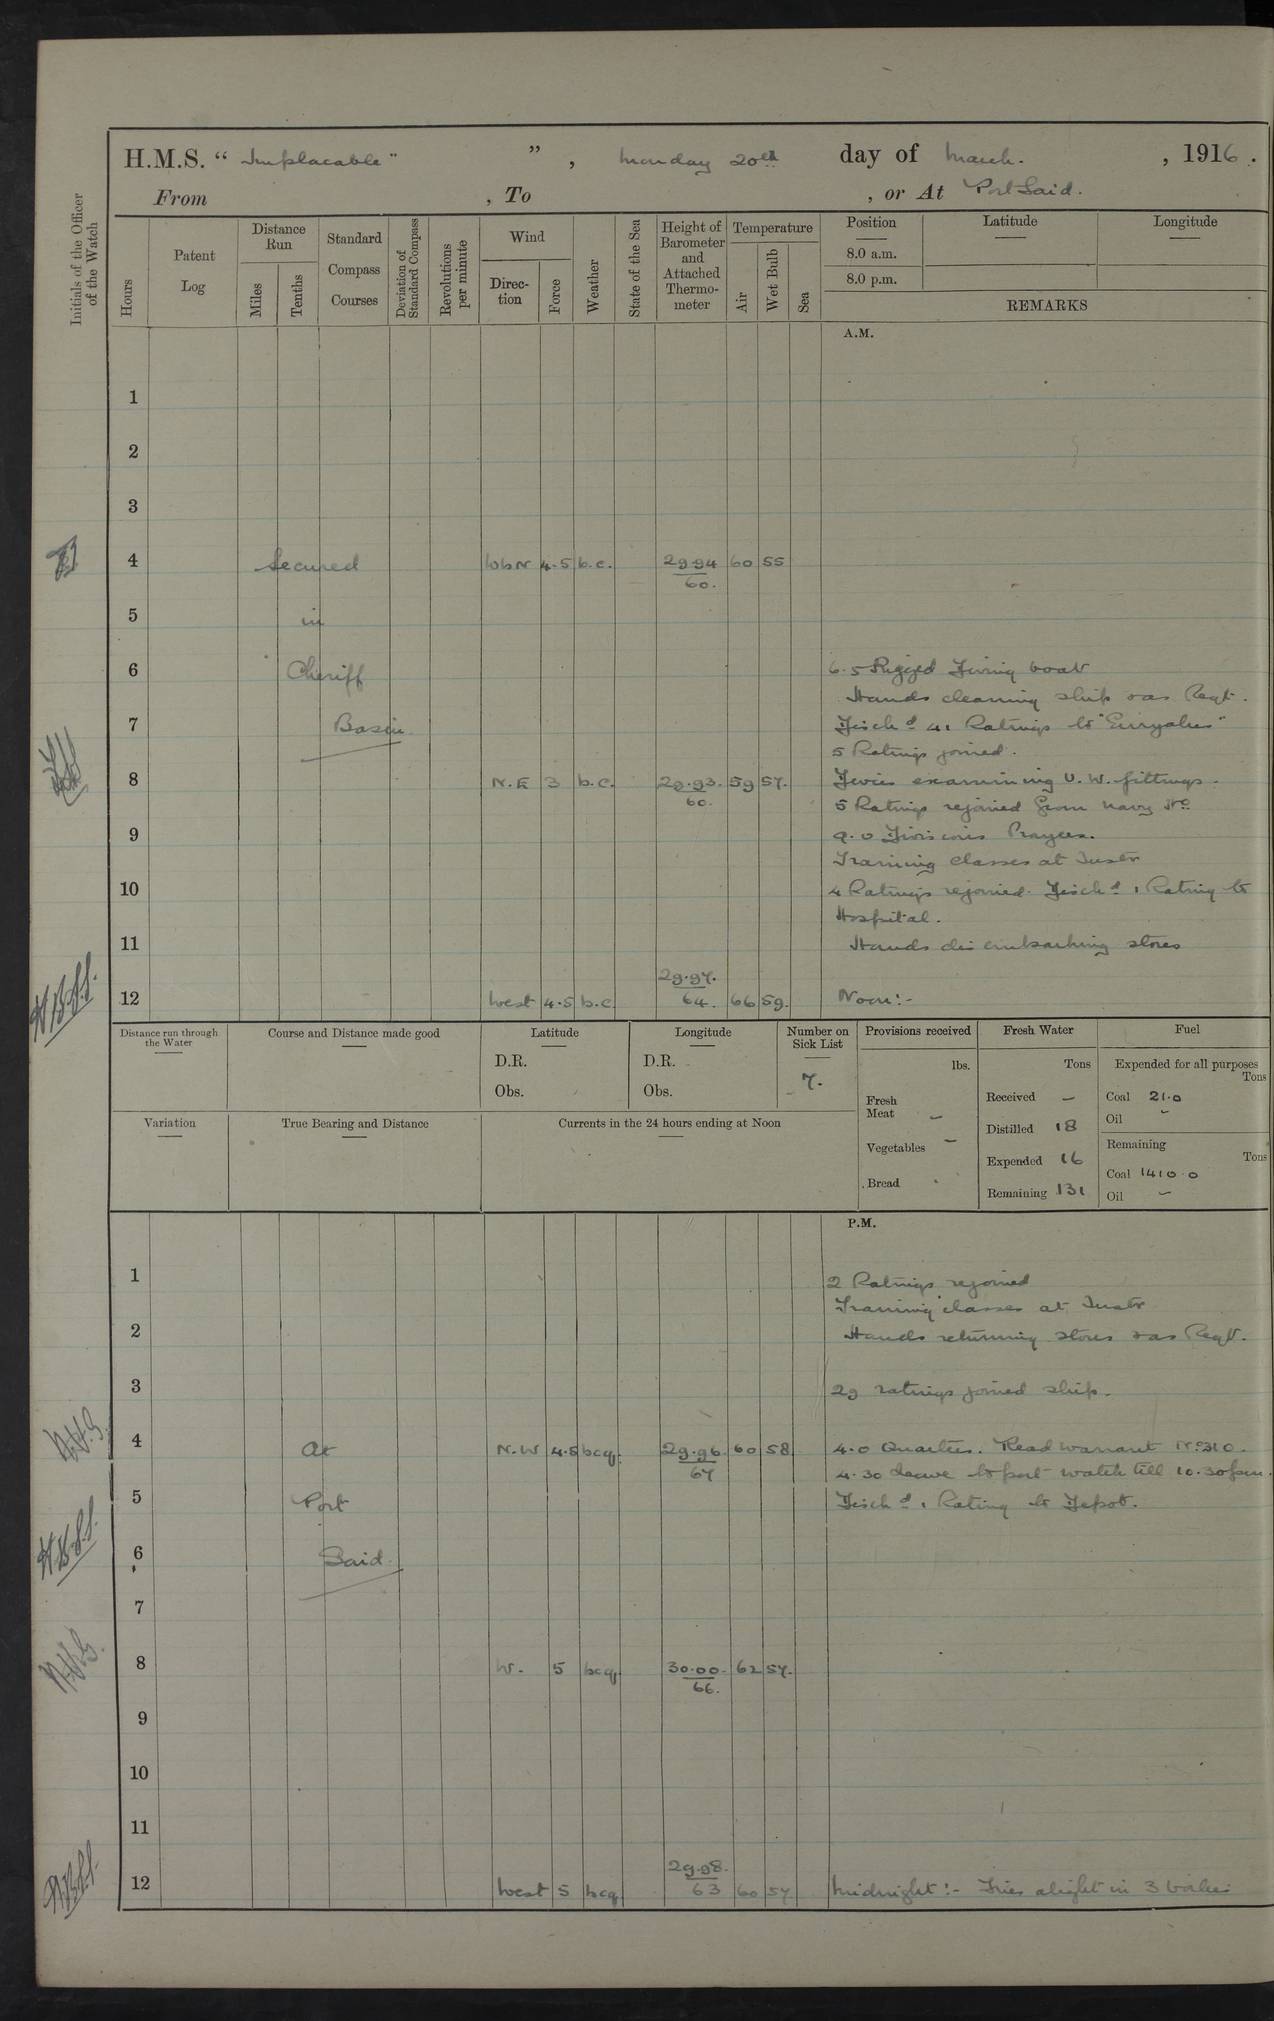 H.M.S. “ Implacable ” ” , Monday 20th day of March. , 1916 .
From , To , or At Port Said.
Initials of the Officer of the Watch
Hours
Patent Log
Distance Run
Miles
Tenths
Standard Compass Courses
Deviation of Standard Compass
Revolutions per minute
Wind
Direction
Force
Weather
State of the Sea
Height of Barometer and Attached Thermometer
Temperature
Air
Wet Bulb
Sea
Position Latitude Longitude
8.0 a.m.
8.0 p.m.
REMARKS
A.M.
1
2
3
4 Secured WbN 4.5 b.c. 29.94 60 55
60.
5 in
6 Cheriff 6.5 Rigged Diving boat
Hands cleaning ship & as Reqt.
7 Basin Disch'd 41 Ratings to "Euryalus"
5 Ratings joined.
8 N.E 3 b.c. 29.93. 59 57. Divers examining U.W. fittings.
60. 5 Ratings rejoined from Navy Ho
9 9.0 Divisions Prayers.
Training Classes at Instn
10 4 Ratings rejoined. Disch'd 1 Rating to
Hospital.
11 Hands disembarking stores
29.97.
12 West 4.5 b.c. 64. 66 59. Noon:-
Distance run through the Water
Course and Distance made good
Latitude
D.R.
Obs.
Longitude
D.R.
Obs.
Number on Sick List
7.
Provisions received
lbs.
Fresh Meat –
Vegetables –
Bread
Fresh Water
Tons
Received –
Distilled 18
Expended 16
Remaining 131
Fuel
Expended for all purposes
Tons
Coal 21.0
Oil –
Remaining
Tons
Coal 1410.0
Oil –
Variation
True Bearing and Distance
Currents in the 24 hours ending at Noon
P.M.
1 2 Ratings rejoined
Training classes at Instn
2 Hands returning stores & as Reqt.
3 29 ratings joined ship.
4 At N.W 4.5 bcq. 29.96 60 58 4.0 Quarters. Read warrant No 310.
67 4.30 Leave to port watch till 10.30pm.
5 Port Disch'd 1 Rating to Depot.
6 Said.
7
8 W. 5 bcq 30.00. 62 57.
66.
9
10
11
29.98.
12 West 5 bcq 63 60 57 Midnight:- Fires alight in 3 boilers